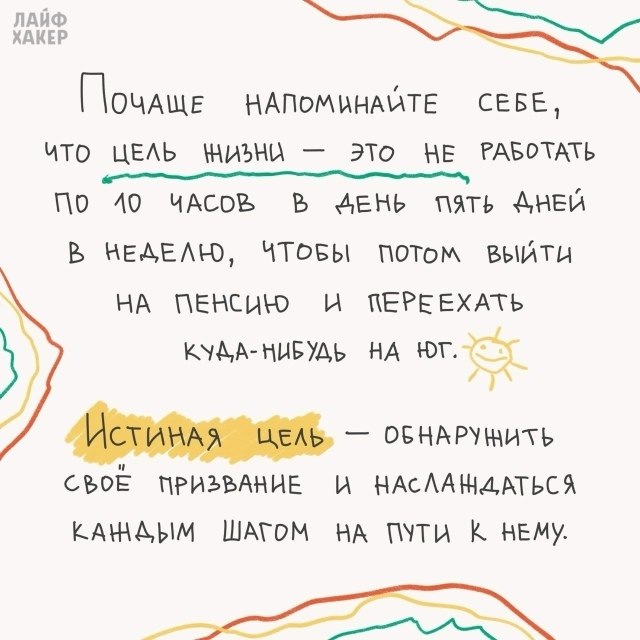 ЛАЙФ
ХАКЕР
Почаще напоминайте себе,
что цель жизни — это не работать
по 10 часов в день пять дней
в неделю, чтобы потом выйти
на пенсию и переехать
куда-нибудь на юг.
Истиная цель — обнаружить
своё призвание и наслаждаться
каждым шагом на пути к нему.